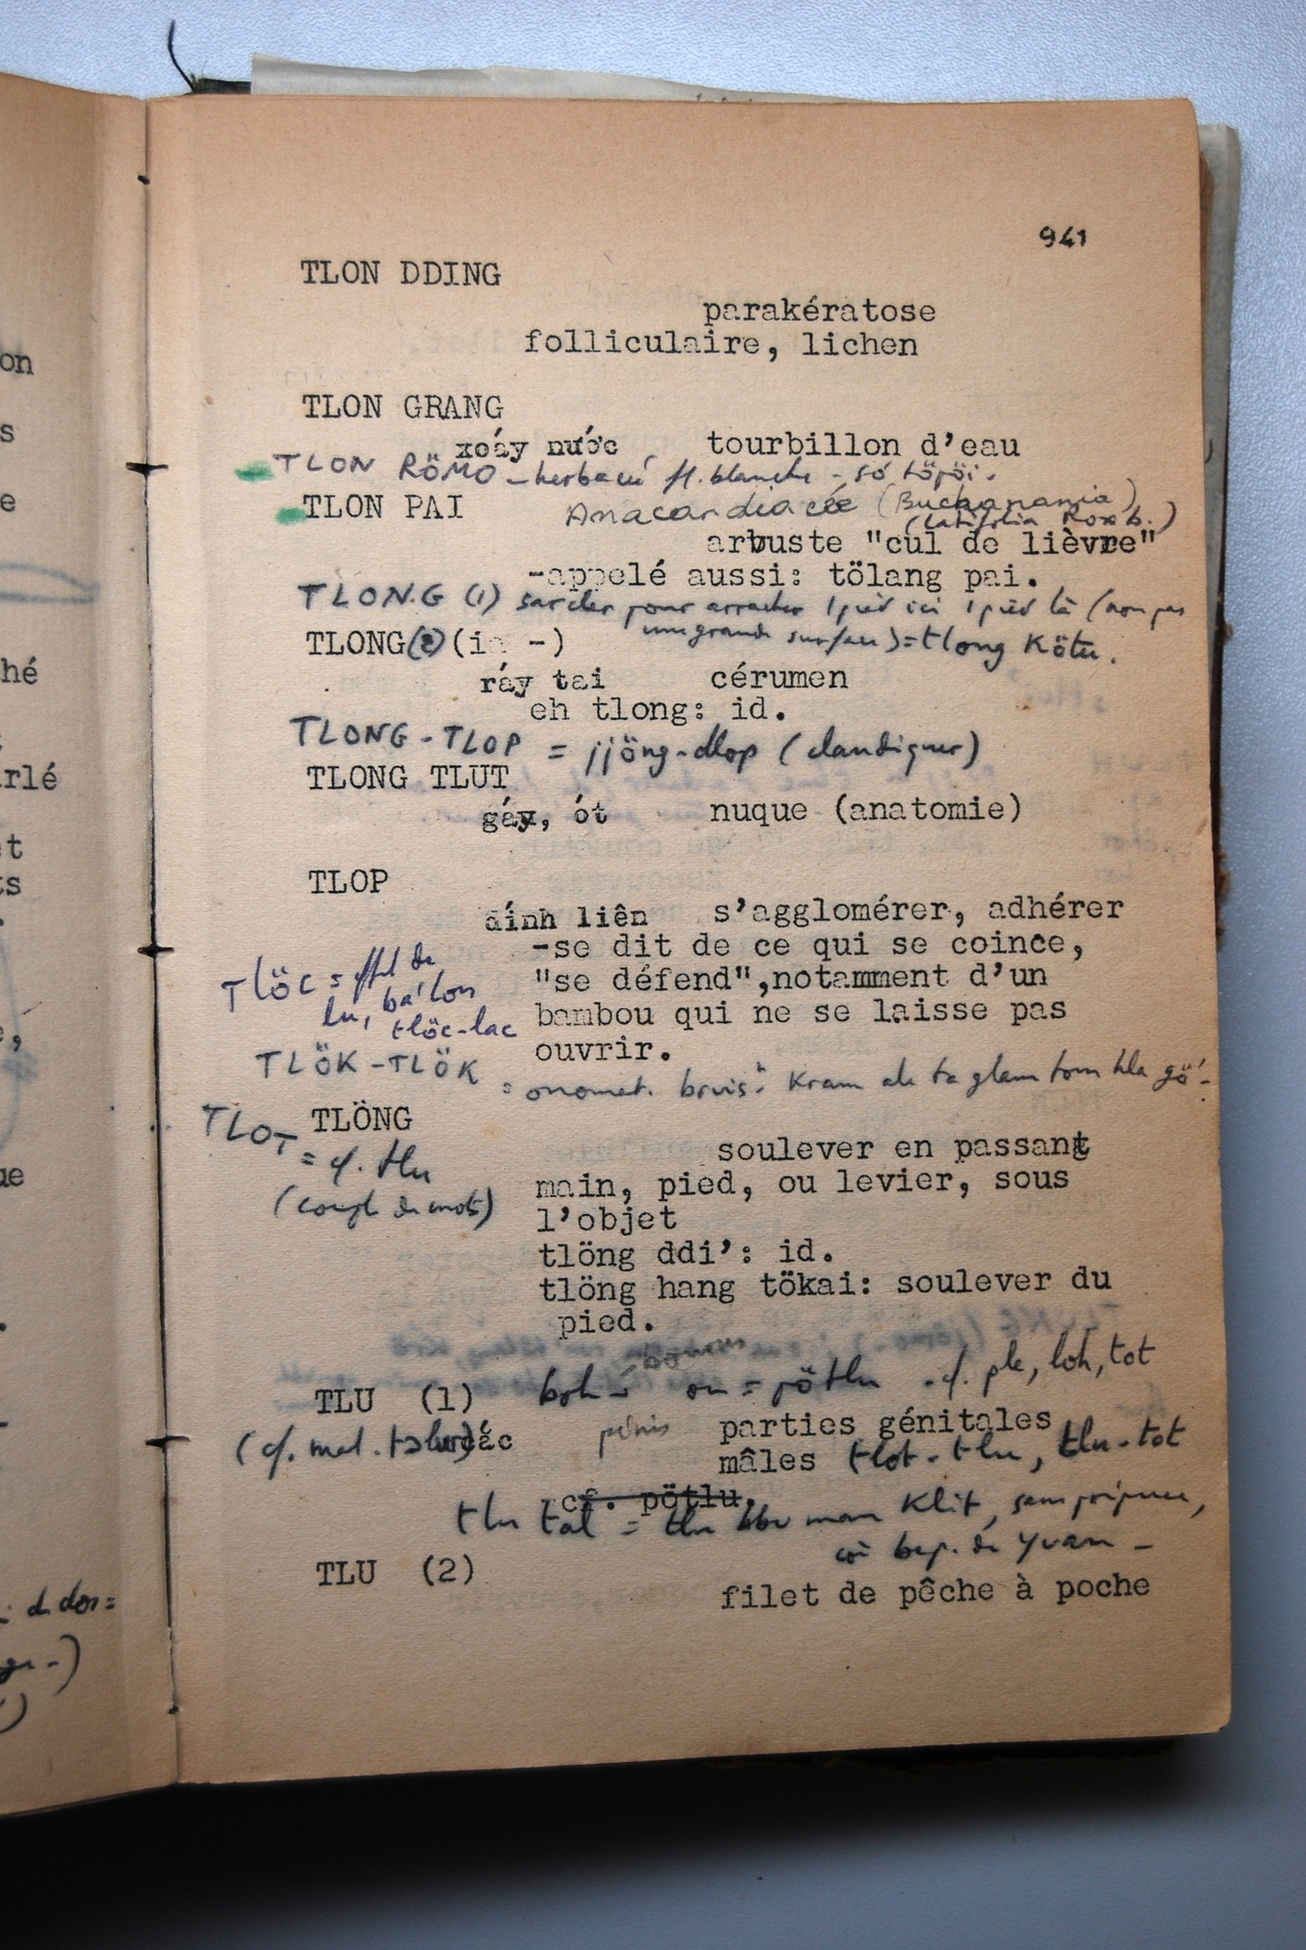 941
TLON DDING
parakératose
folliculaire, lichen
TLON GRANG
xoáy nước tourbillon d'eau
TLON RÖMO - herbacé fl. blanche -
TLON PAI Anacardiacée (Buchanania)
(latifolia Roxb.)
arbuste "cul de lièvre"
-appelé aussi: tölang pai.
TLONG (1) sarcler pour arracher 1 pied ici 1 pied là (non pas
une grande surface) = tlong Kötu.
TLONG (2) (ia -)
ráy tai cérumen
eh tlong: id.
TLONG-TLOP = jjöng-dlop (claudiquer)
TLONG TLUT
gáy, ót nuque (anatomie)
TLOP
dính liên s'agglomérer, adhérer
-se dit de ce qui se coince,
"se défend",notamment d'un
bambou qui ne se laisse pas
ouvrir.
TLÖC =
tlöc-lac
TLÖK-TLÖK = onomat. bruis. Kram
TLOT = cf. tlu
(coupl. de mots)
TLÖNG
soulever en passant
main, pied, ou levier, sous
l'objet
tlöng ddi': id.
tlöng hang tökai: soulever du
pied.
TLU (1) = pötlu cf. ple, loh, tot
(cf. mal.
pénis parties génitales
mâles tlot-tlu, tlu-tot
cf. pötlu.
tlu tal = tlu Klit, sans prépuce,
de Yuan -
TLU (2)
filet de pêche à poche
on
s
e
hé
arlé
et
ts
ue